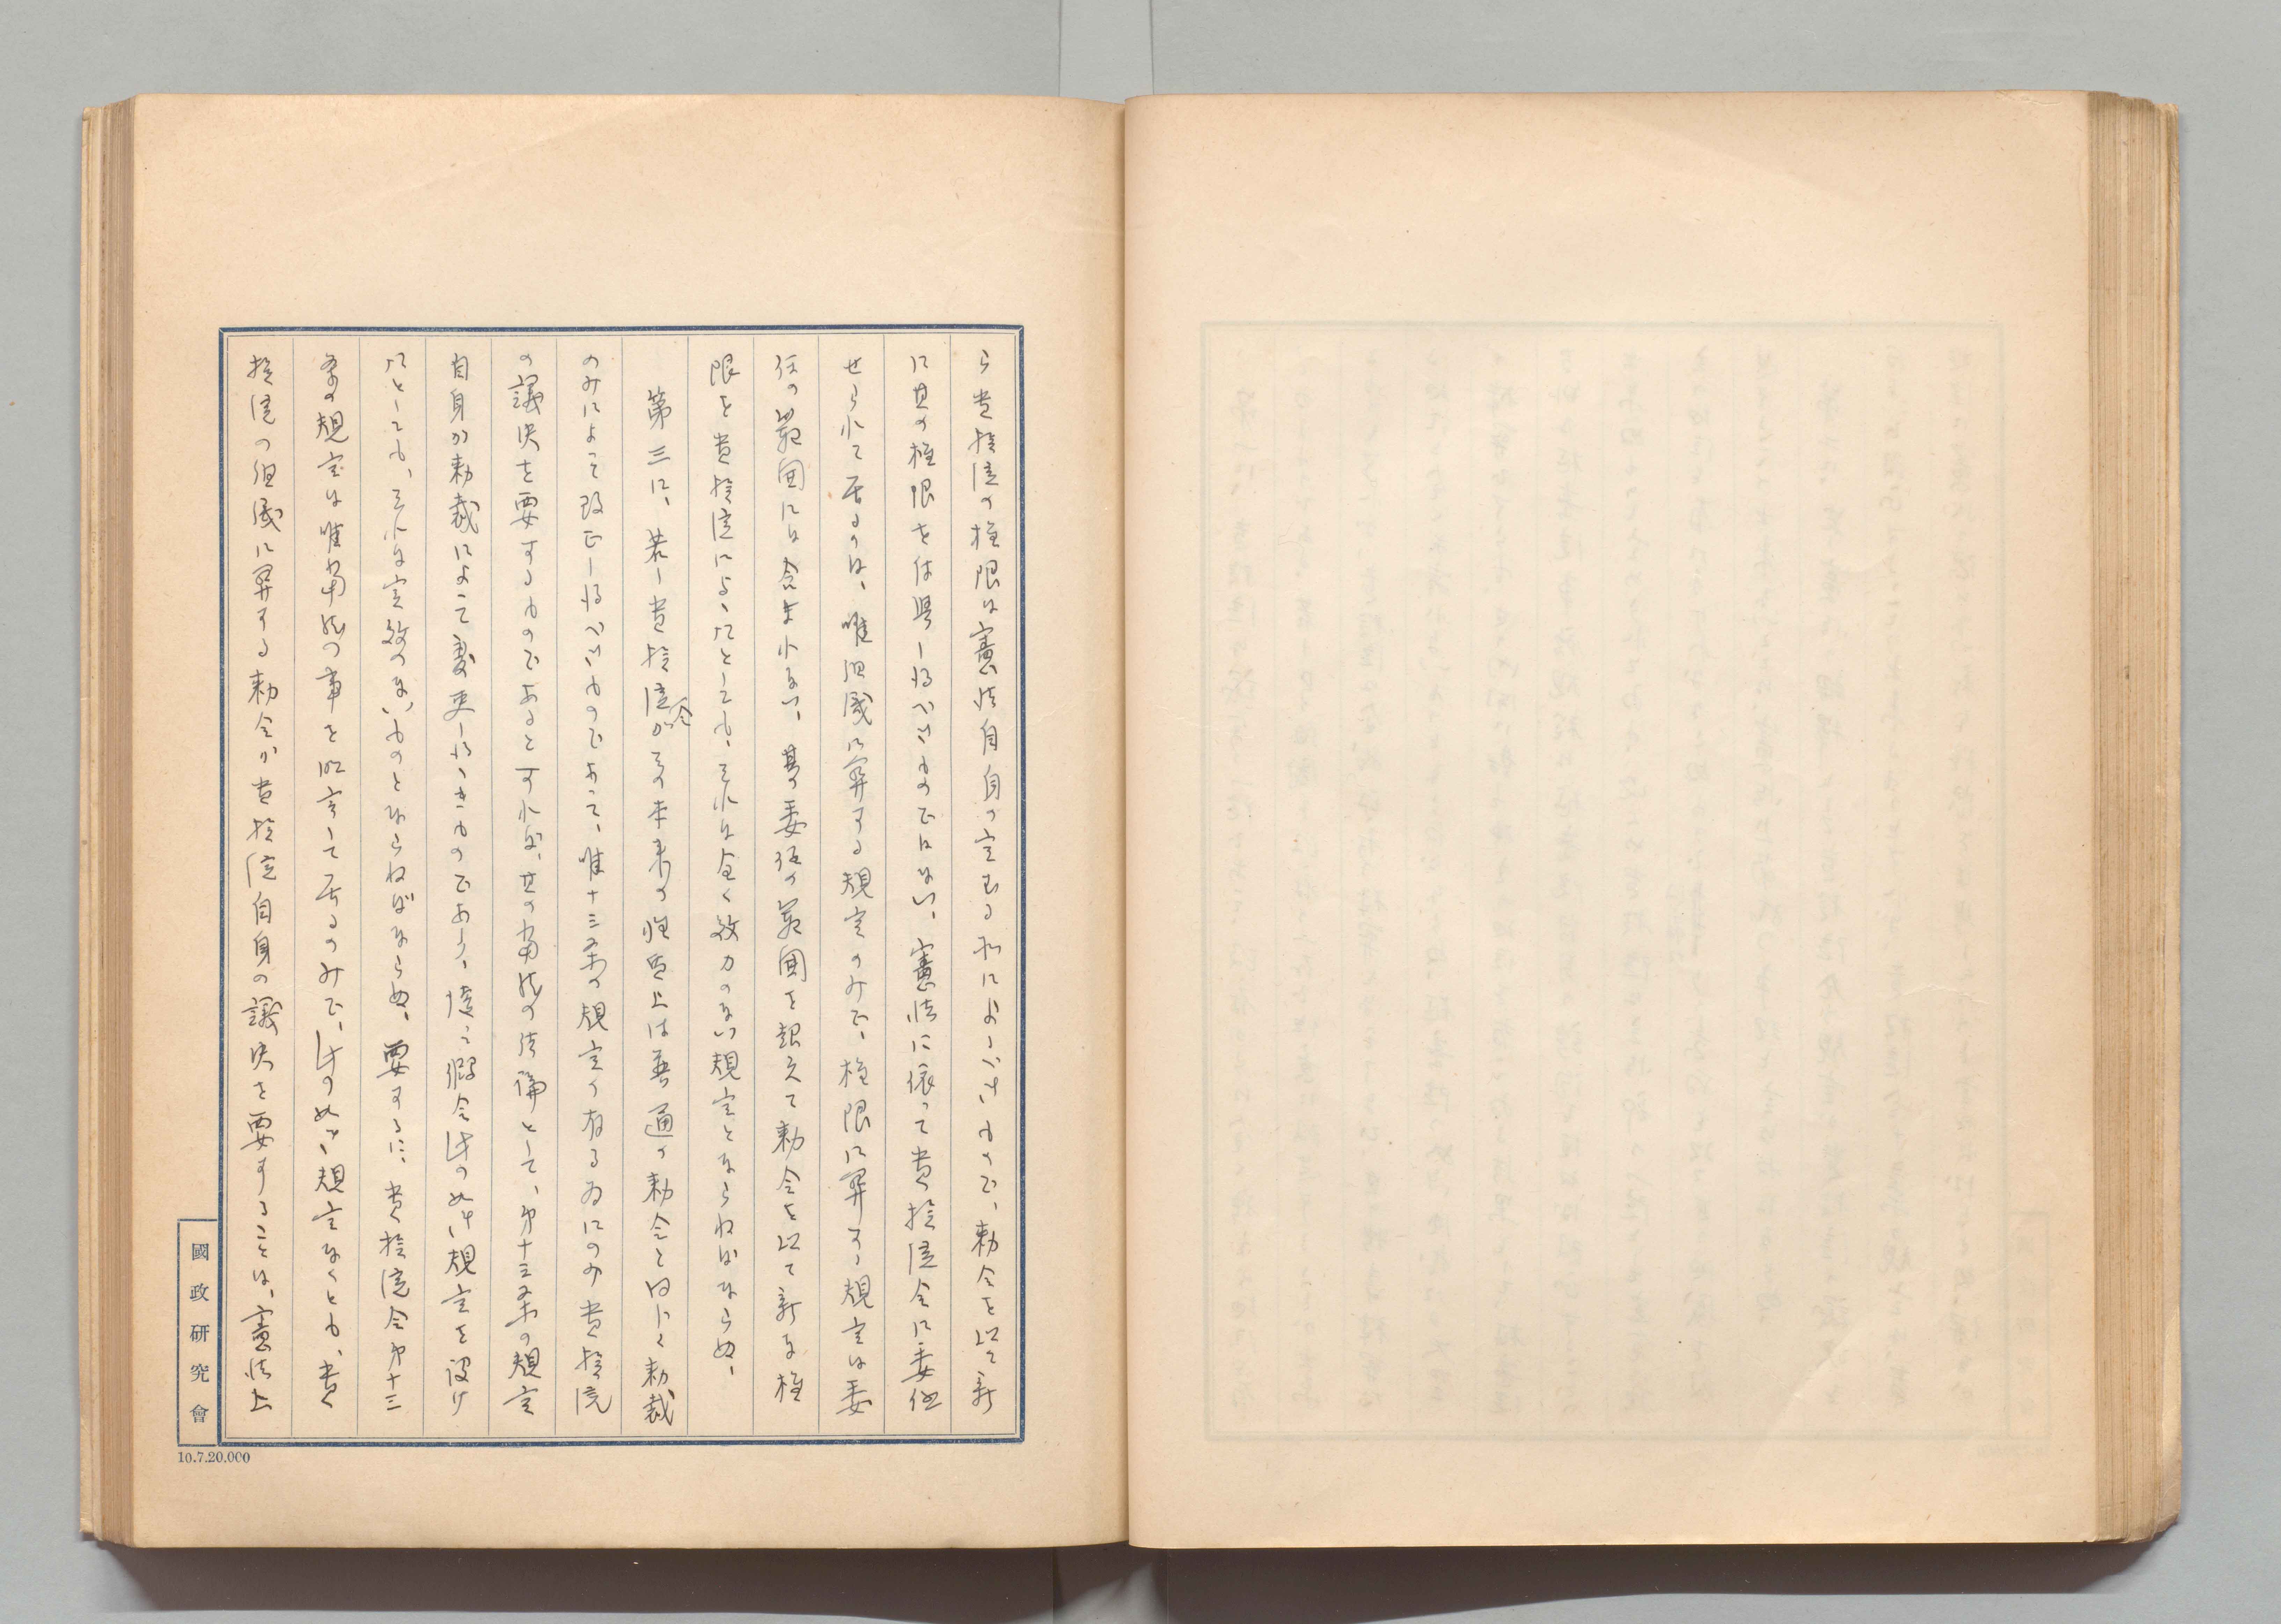 ら貴族院の権限は憲法自身の定むる所によるべきもので、勅令を以て新
に其の権限を付与し得べきものではない、憲法に依って貴族院令に委任
せられて居るのは、唯組成に関する規定のみで、権限に関する規定は委
任の範囲には含まれない、其の委任の範囲を超えて勅令を以て新な権
限を貴族院に与へたとしても、それは全く効力のない規定とならねばならぬ、
第三に、若し貴族院令がその本来の性質上は普通の勅令と同じく勅裁
のみによって改正し得べきものであって、唯十三条の規定が有る為にのみ貴族院
の議決を要するものであるとすれば、其の当然の結論として、第十三条の規定
自身が勅裁によって変更し得べきものであり、従て仮令此の如き規定を設け
たとしても、それは実効のないものとならねばならぬ、要するに、貴族院令第十三
条の規定は唯当然の事を明言して居るのみで、此の如き規定なくとも、貴
族院の組成に関する勅令が貴族院自身の議決を要することは、憲法上
國政研究會
10.7.20.000